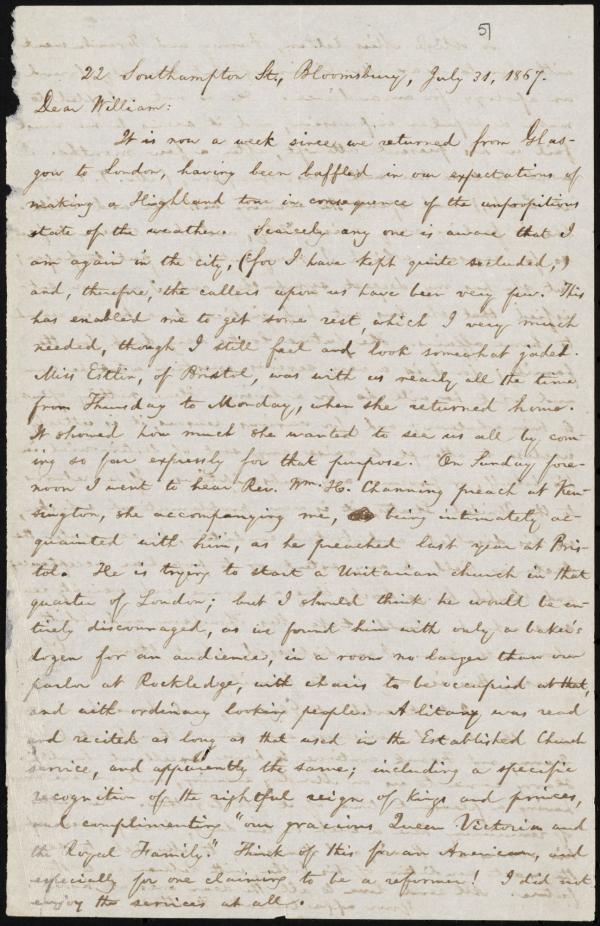 5
22 Southampton St., Bloomsbury, July 31, 1867.
Dear William:
It is now a week since we returned from Glas-
gow to London, having been baffled in our expectations of
making a Highland tour in consequence of the unpropitious
state of the weather. Scarcely any one is aware that I
am again in the city, (for I have kept quite secluded,)
and, therefore, the callers upon us have been very few. This
has enabled me to get some rest, which I very much
needed, though I still feel and look somewhat jaded.
Miss Estlin, of Bristol, was with us nearly all the time
from Thursday to Monday, when she returned home.
It showed how much she wanted to see us all by com-
ing so far expressly for that purpose. On Sunday fore-
noon I went to hear Rev. Wm. H. Channing preach at Ken-
sington, she accompanying me, being intimately ac-
quainted with him, as he preached last year at Bris-
tol. He is trying to start a Unitarian church in that
quarter of London; but I should think he would be en-
tirely discouraged, as we found him with only a baker's
dozen for an audience, in a room no larger than our
parlor at Rockledge, with chairs to be occupied at that,
and with ordinary looking people. A litany was read
and recited as long as that used in the Established Church
service, and apparently the same; including a specific
recognition of the rightful reign of kings and princes,
and complimenting "our gracious Queen Victoria and
the Royal Family." Think of this for an American, and
especially for one claiming to be a reformer! I did not
enjoy the services at all.